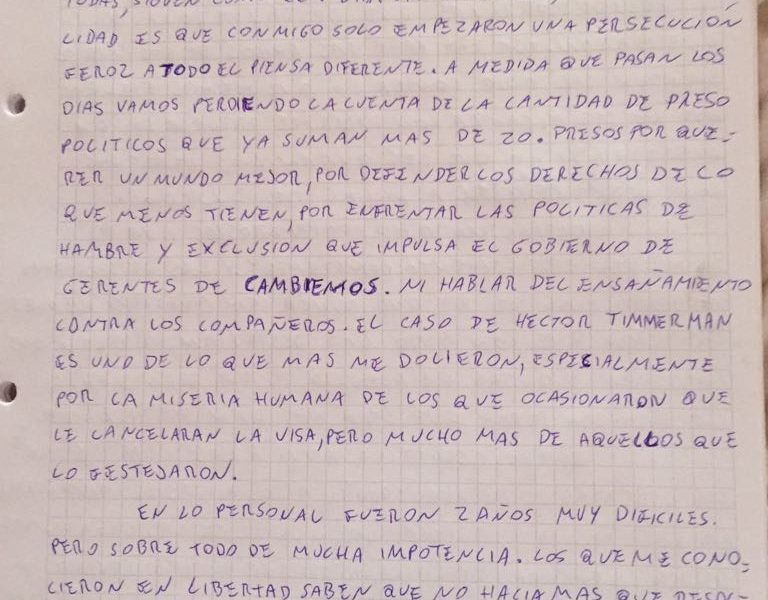 LIDAD ES QUE CONMIGO SOLO EMPEZARON UNA PERSECUCIÓN
FEROZ A TODO EL PIENSA DIFERENTE. A MEDIDA QUE PASAN LOS
DIAS VAMOS PERDIENDO LA CUENTA DE LA CANTIDAD DE PRESO
POLITICOS QUE YA SUMAN MAS DE 20. PRESOS POR QUE-
RER UN MUNDO MEJOR, POR DEFENDER LOS DERECHOS DE LO
QUE MENOS TIENEN, POR ENFRENTAR LAS POLITICAS DE
HAMBRE Y EXCLUSION QUE IMPULSA EL GOBIERNO DE
GERENTES DE CAMBIEMOS. NI HABLAR DEL ENSAÑAMIENTO
CONTRA LOS COMPAÑEROS. EL CASO DE HECTOR TIMMERMAN
ES UNO DE LO QUE MAS ME DOLIERON, ESPECIALMENTE
POR LA MISERIA HUMANA DE LOS QUE OCASIONARON QUE
LE CANCELARAN LA VISA, PERO MUCHO MAS DE AQUELLOS QUE
LO FESTEJARON.
EN LO PERSONAL FUERON 2 AÑOS MUY DIFICILES.
PERO SOBRE TODO DE MUCHA IMPOTENCIA. LOS QUE ME CONO-
CIERON EN LIBERTAD SABEN QUE NO HACIA MAS QUE